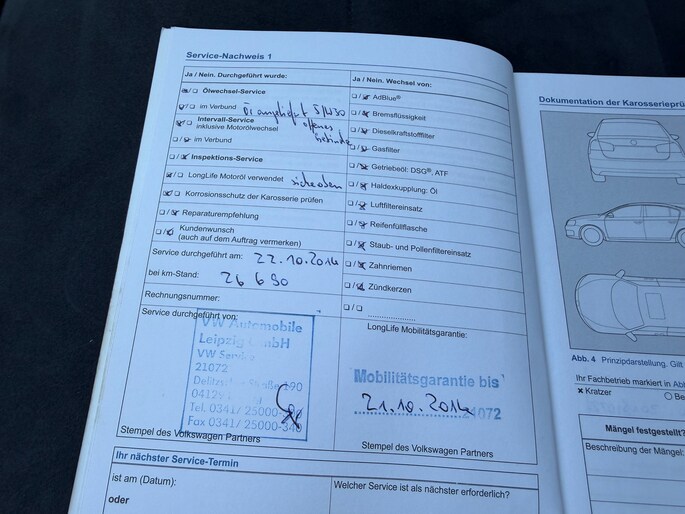 Service-Nachweis 1
Ja / Nein. Durchgeführt wurde:
Ölwechsel-Service
im Verbund Öl angeliefert 5W30
Intervall-Service offenes
inklusive Motorölwechsel
im Verbund
Inspektions-Service
LongLife Motoröl verwendet siehe oben
Korrosionsschutz der Karosserie prüfen
Reparaturempfehlung
Kundenwunsch
(auch auf dem Auftrag vermerken)
Service durchgeführt am: 22.10.2014
bei km-Stand: 26 690
Rechnungsnummer:
Service durchgeführt von:
VW Automobile
Leipzig GmbH
VW Service
21072
Delitzscher Straße 190
Tel. 0341/ 25000-
Fax 0341/ 25000-340
Stempel des Volkswagen Partners
Ja / Nein. Wechsel von:
AdBlue®
Bremsflüssigkeit
Dieselkraftstofffilter
Gasfilter
Getriebeöl: DSG®, ATF
Haldexkupplung: Öl
Luftfiltereinsatz
Reifenfüllflasche
Staub- und Pollenfiltereinsatz
Zahnriemen
Zündkerzen
LongLife Mobilitätsgarantie:
Mobilitätsgarantie bis
21.10.2016
21072
Stempel des Volkswagen Partners
Ihr nächster Service-Termin
ist am (Datum):
oder
Welcher Service ist als nächster erforderlich?
Dokumentation der Karosserieprü
Abb. 4 Prinzipdarstellung. Gilt
Ihr Fachbetrieb markiert in Abb
Kratzer
Be
Mängel festgestellt?
Beschreibung der Mängel: